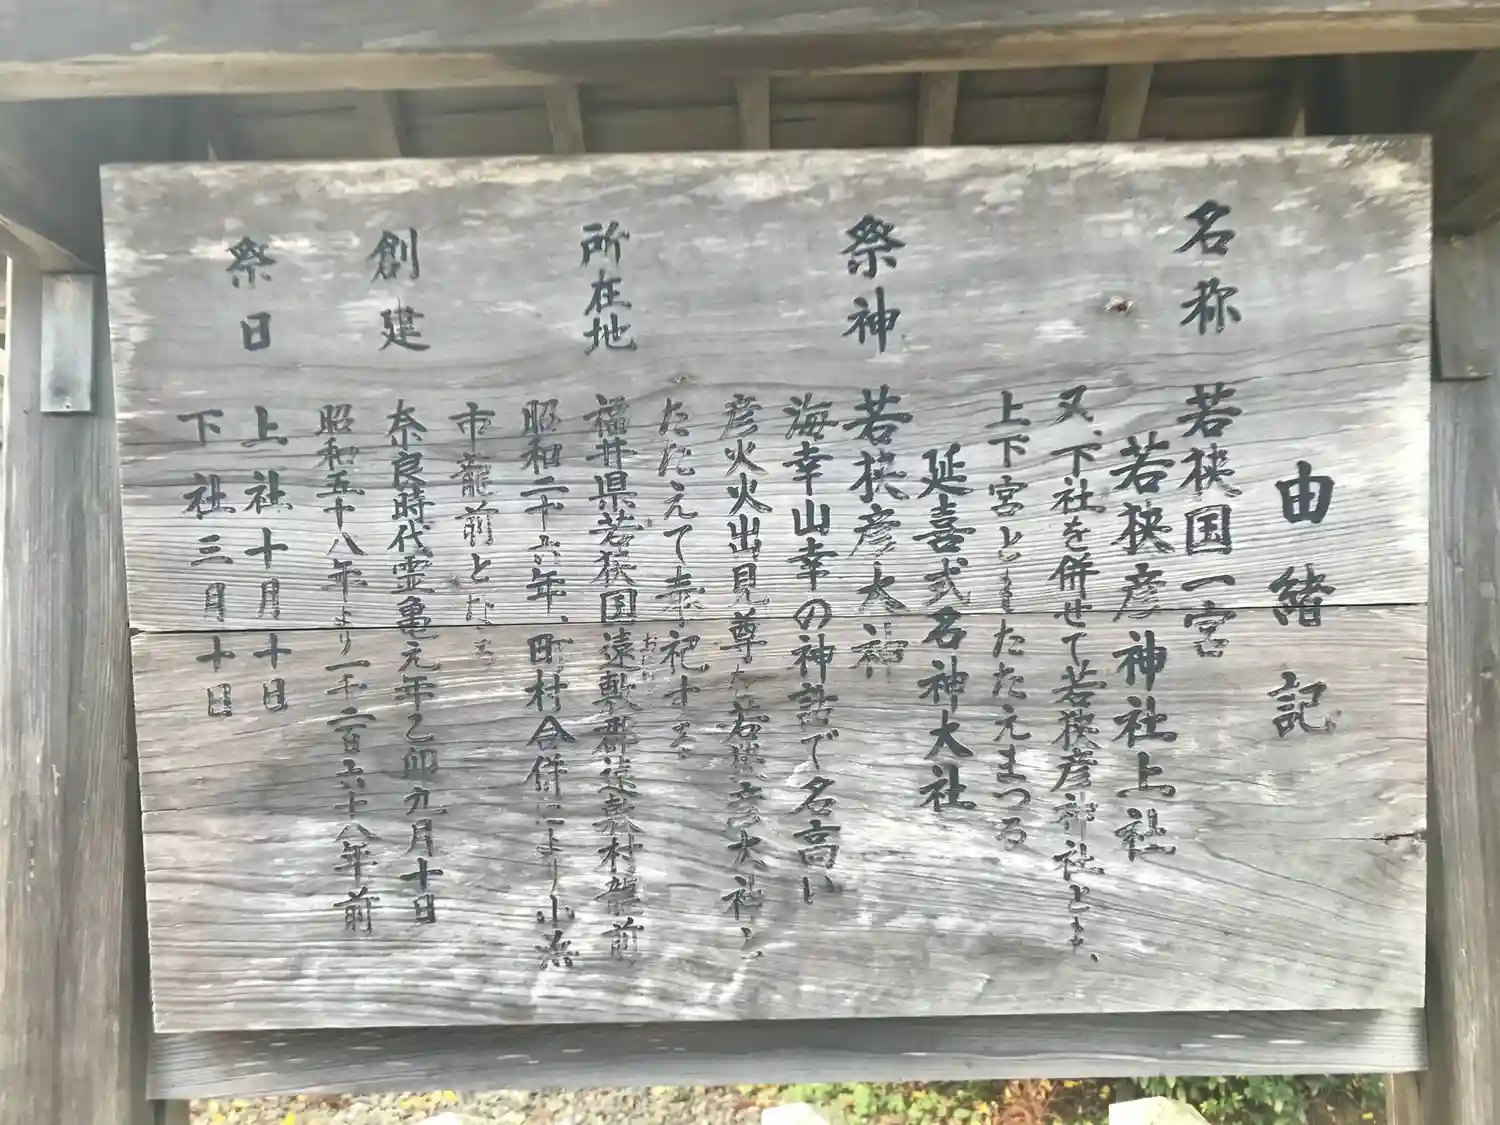 由緒記
名称 若狭国一宮
若狭彦神社上社
又、下社を併せて若狭彦神社とも、
上下宮ともたた元まつる
延喜式名神大社
祭神 若狭彦大神
海幸山幸の神話で名高い
彦火火出見尊を若狭彦大神と
たたえて奉祀する
所在地 福井県若狭国遠敷郡遠敷村龍前
おにゅう
昭和二十六年、町村合併により小浜
市龍前となる
創建 奈良時代霊亀元年乙卯九月十日
昭和五十八年より一千二百六十八年前
祭日 上社十月十日
下社三月十日